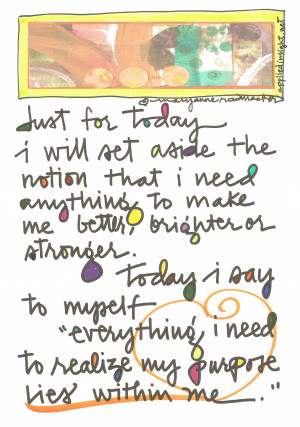 appliedinsight.net
© maryanne radmacher
Just for today
i will set aside the
notion that i need
anything to make
me better, brighter or
stronger.
Today i say
to myself
"everything i need
to realize my purpose
lies within me."